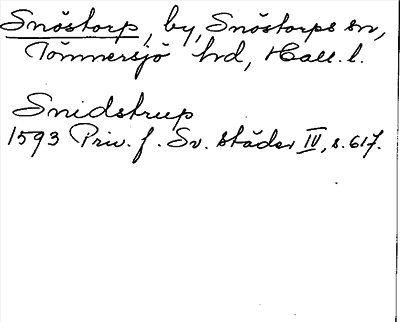 Snöstorp, by, Snöstorps sn,
Tönnersjö hd, Hall. l.
Snidstrup
1593 Priv. f. Sv. städer IV, s. 617.